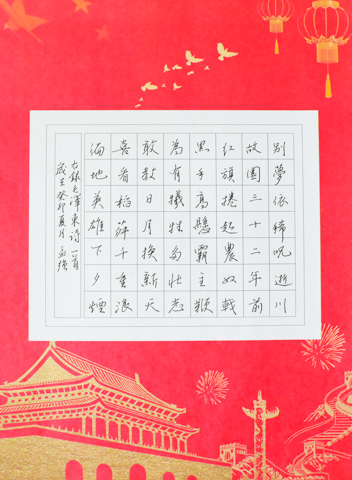 別夢依稀呪逝川
故園三十二年前
紅旗捲起農奴戟
黑手高懸霸主鞭
為有犧牲多壯志
敢教日月換新天
喜看稻菽千重浪
徧地英雄下夕煙
右錄毛澤東詩一首
歲在癸卯夏月孟強